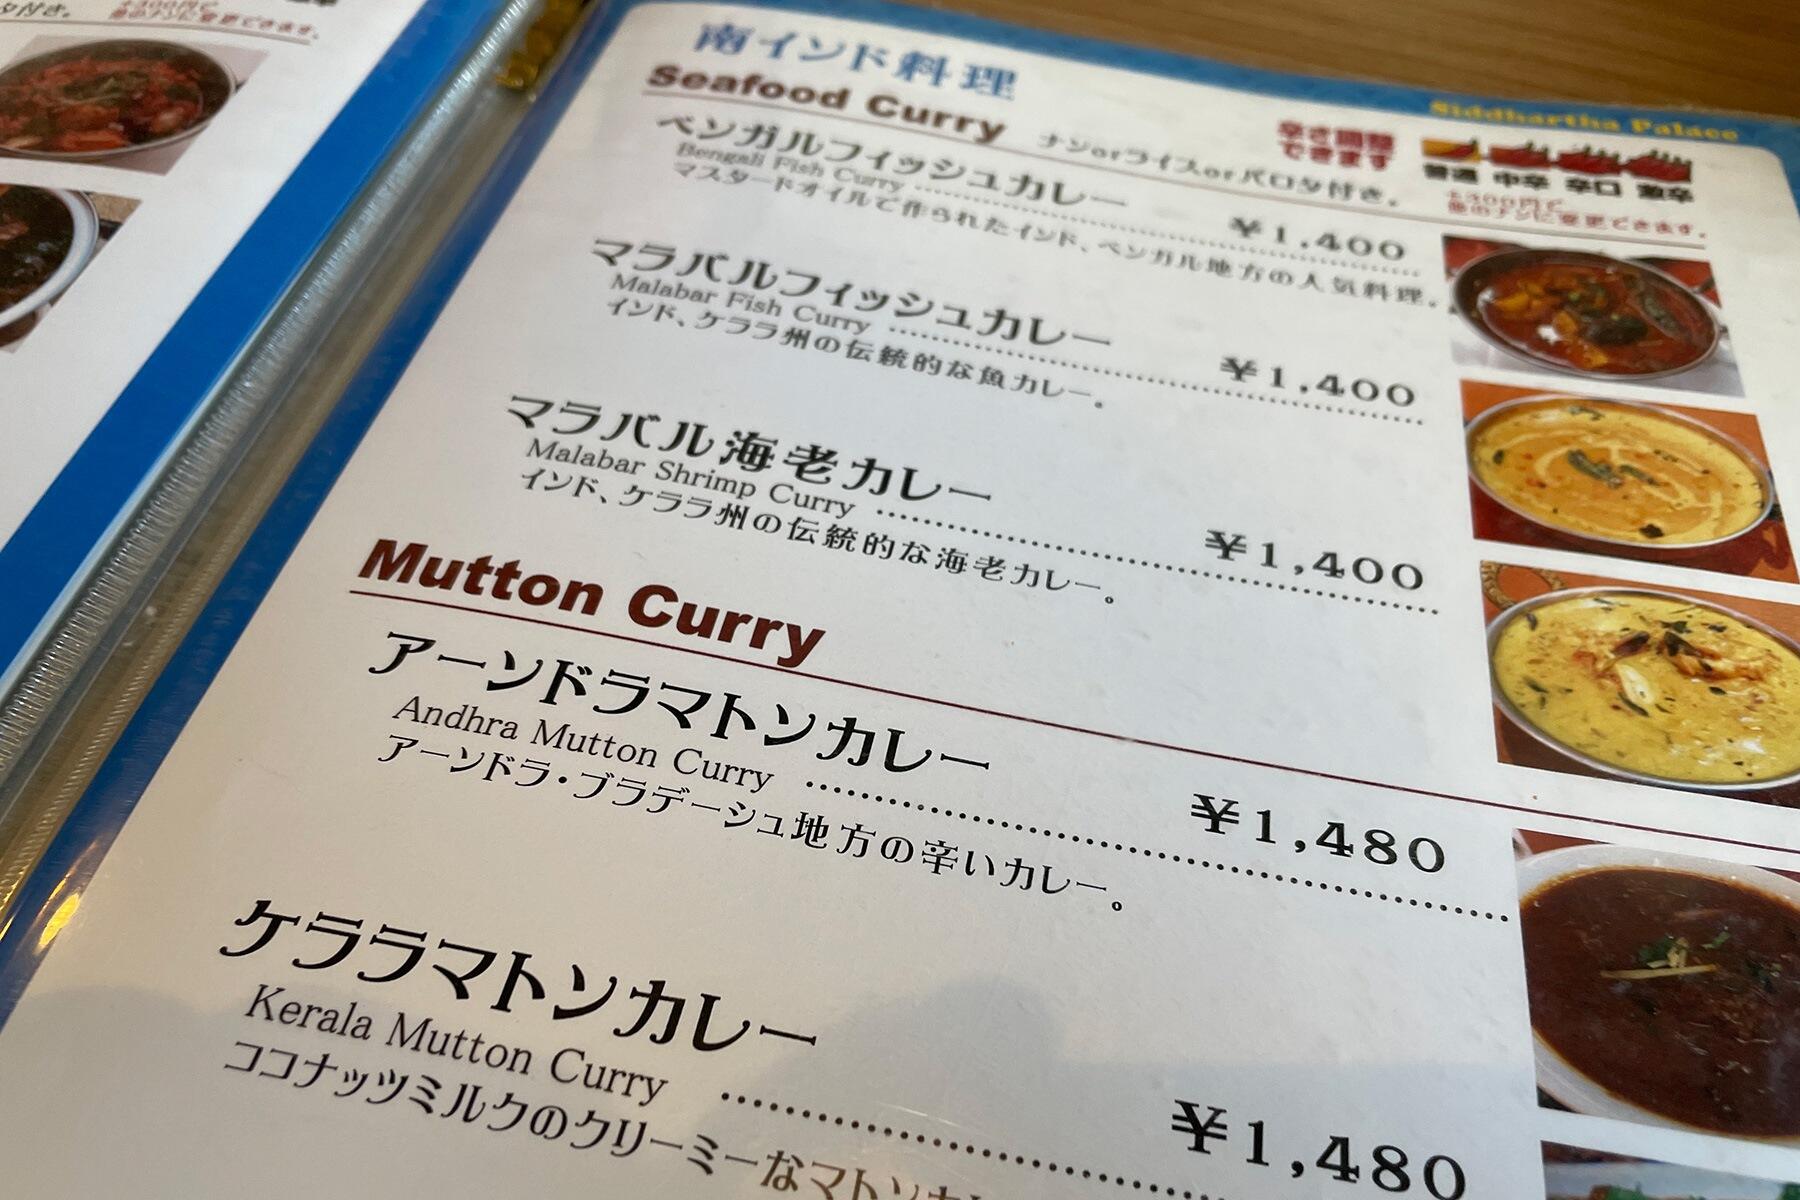 タ付き。
Siddhartha Palace
南インド料理
Seafood Curry
ナンorライスorパロタ付き。
辛さ調整
できます
普通 中辛 辛口 激辛
+300円で
他のナンに変更できます。
ベンガルフィッシュカレー
Bengali Fish Curry ¥1,400
マスタードオイルで作られたインド、ベンガル地方の人気料理。
マラバルフィッシュカレー
Malabar Fish Curry ¥1,400
インド、ケララ州の伝統的な魚カレー。
マラバル海老カレー
Malabar Shrimp Curry ¥1,400
インド、ケララ州の伝統的な海老カレー。
Mutton Curry
アーンドラマトンカレー
Andhra Mutton Curry ¥1,480
アーンドラ・ブラデーシュ地方の辛いカレー。
ケララマトンカレー
Kerala Mutton Curry ¥1,480
ココナッツミルクのクリーミーなマトンカレ